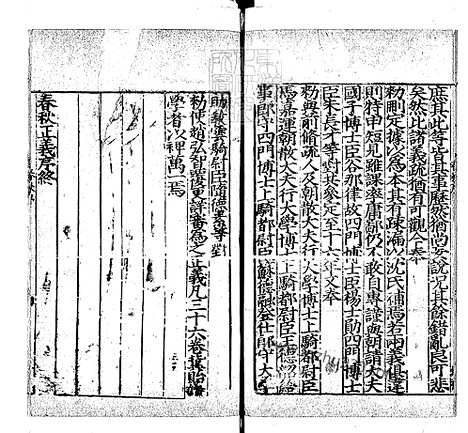 庶其此等皆其事歷然猶尚妄說況其餘錯亂良可悲
矣然比諸義疏猶有可觀今奉
勑刪定據以爲本其有疎漏以沈氏補焉若兩義俱違
則特申短見雖課率庸鄙仍不敢自專謹與朝請大夫
國子博士臣谷那律故四門博士臣楊士勛四門博士
臣朱長才等對共參定至十六年又奉
勑與前脩疏人及朝散大夫行大學博士上騎都尉臣
馬嘉運朝散大夫行大學博士上騎都尉臣王德韶給
事郎守四門博士上騎都尉臣蘇德融登仕郎守大
助教雲騎尉臣隨德素等對
勑使趙弘智覆更詳審爲之正義凡三十六卷冀貽諸
學者以裨萬一焉
春秋正義序終